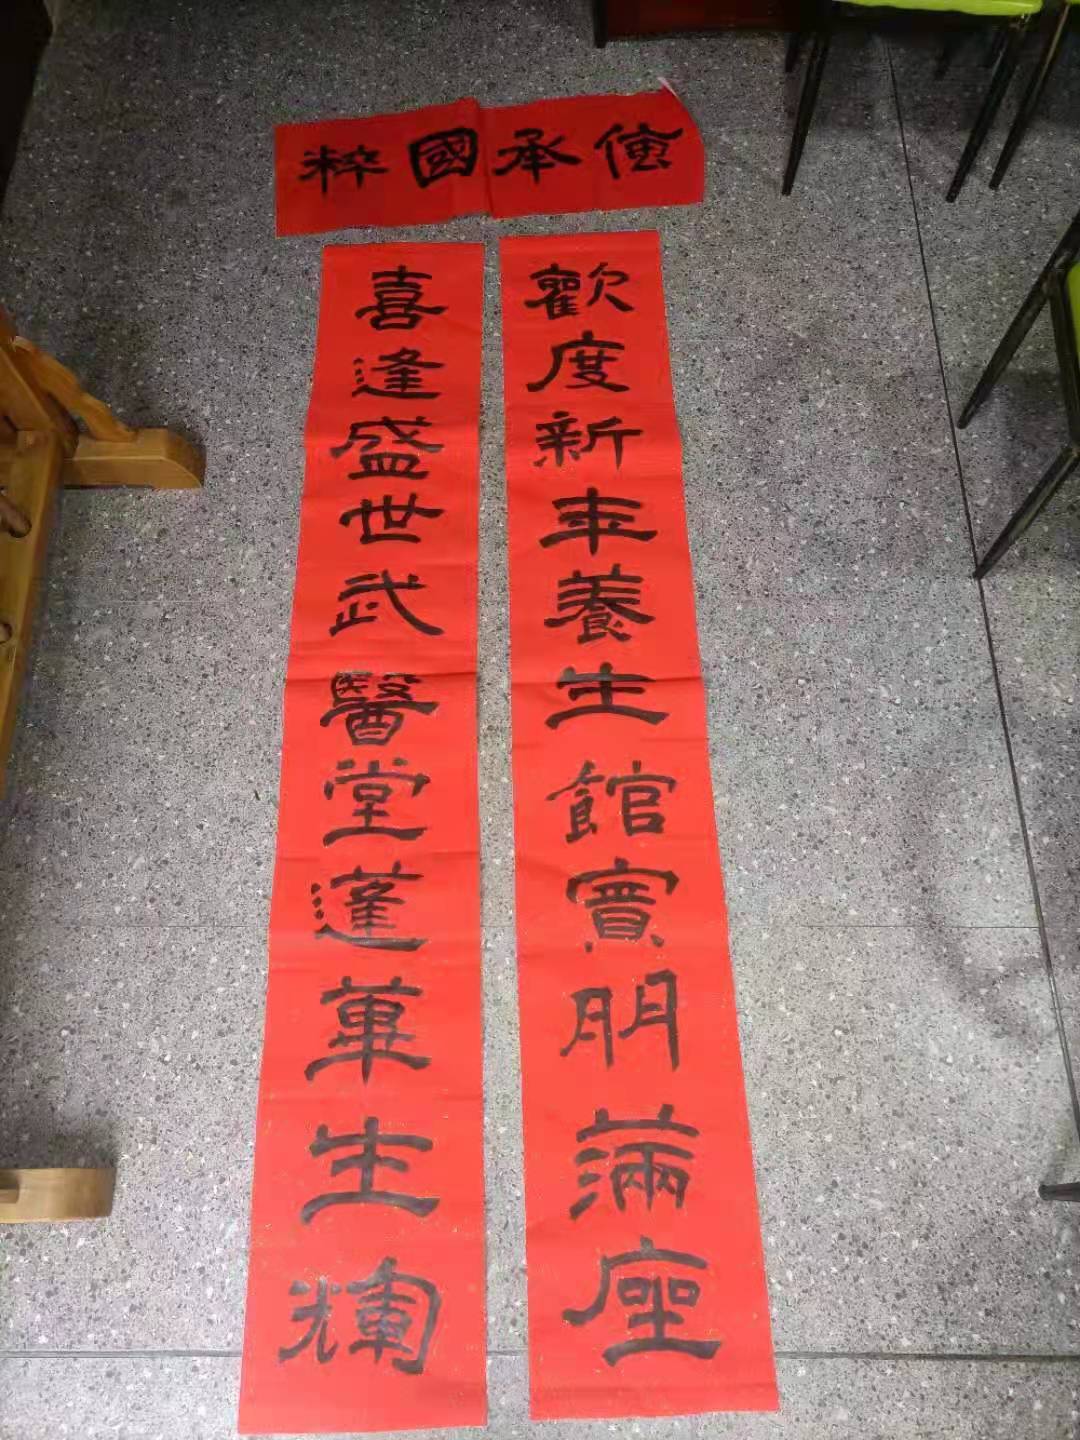 傳承國粹
歡度新年養生館賓朋滿座
喜逢盛世武醫堂蓬蓽生輝